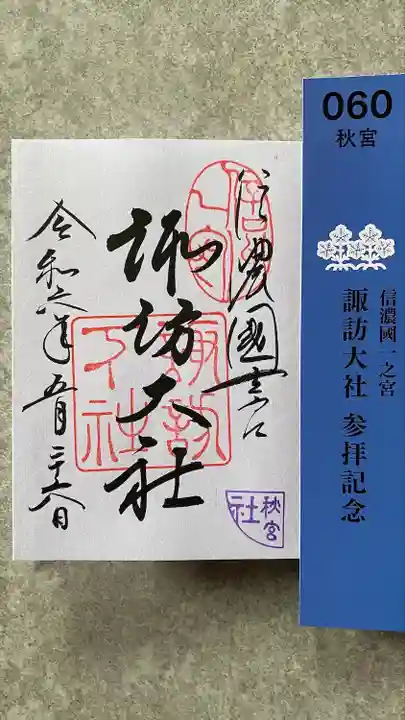 060
秋宮
信濃國一之宮
諏訪大社 参拝記念
信濃國一之宮
諏訪大社
諏訪下社
令和六年五月二十六日
秋宮
社